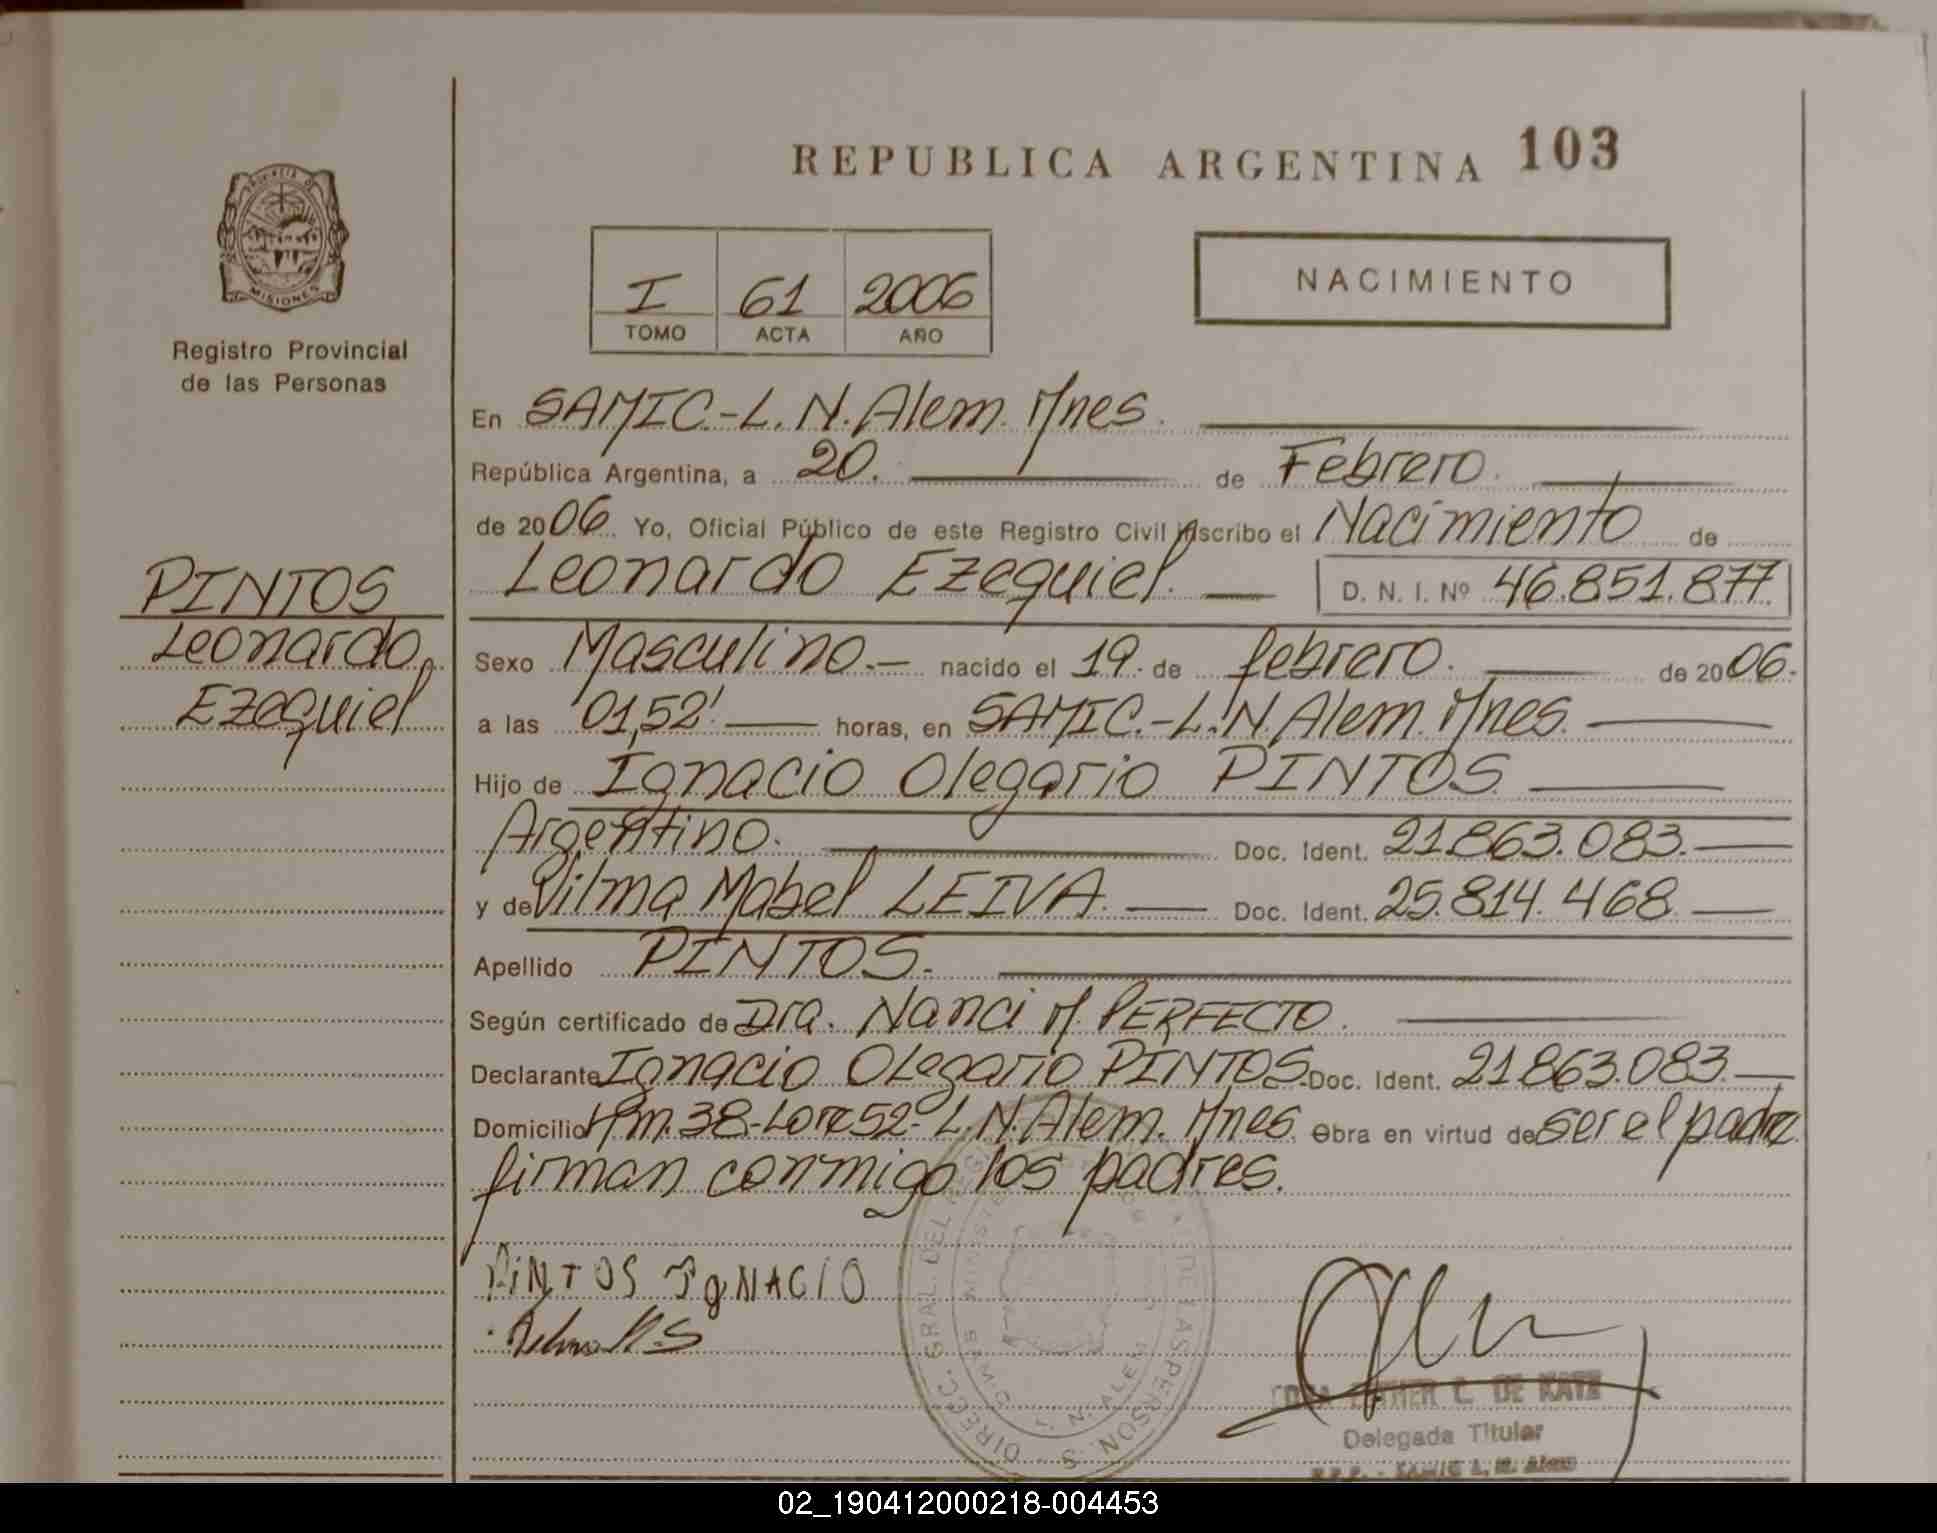 REPUBLICA ARGENTINA 103
PROVINCIA DE
MISIONES
Registro Provincial
de las Personas
I 61 2006
TOMO ACTA AÑO
NACIMIENTO
PINTOS
Leonardo
Ezequiel
En SAMIC.-L.N.Alem. Mnes.
República Argentina, a 20. de Febrero.
de 2006. Yo, Oficial Público de este Registro Civil inscribo el Nacimiento de
Leonardo Ezequiel. D. N. I. Nº 46.851.877.
Sexo Masculino.- nacido el 19. de febrero. de 2006.
a las 01,52' horas, en SAMIC.-L.N.Alem. Mnes.
Hijo de Ignacio Olegario PINTOS.
Argentino. Doc. Ident. 21.863.083.
y de Vilma Mabel LEIVA. Doc. Ident. 25.814.468.
Apellido PINTOS.
Según certificado de Dra. Nanci M. PERFECTO.
Declarante Ignacio Olegario PINTOS. Doc. Ident. 21.863.083.
Domicilio Km.38-Lote 52-L.N.Alem. Mnes. Obra en virtud de ser el padre
firman conmigo los padres.
PiNTOS IgNACIO
DIREC. GRAL. DEL
L. N. ALEM
ESTHER C. DE KATZ
Delegada Titular
R.P.P. - SAMIC L. N. Alem
02_190412000218-004453